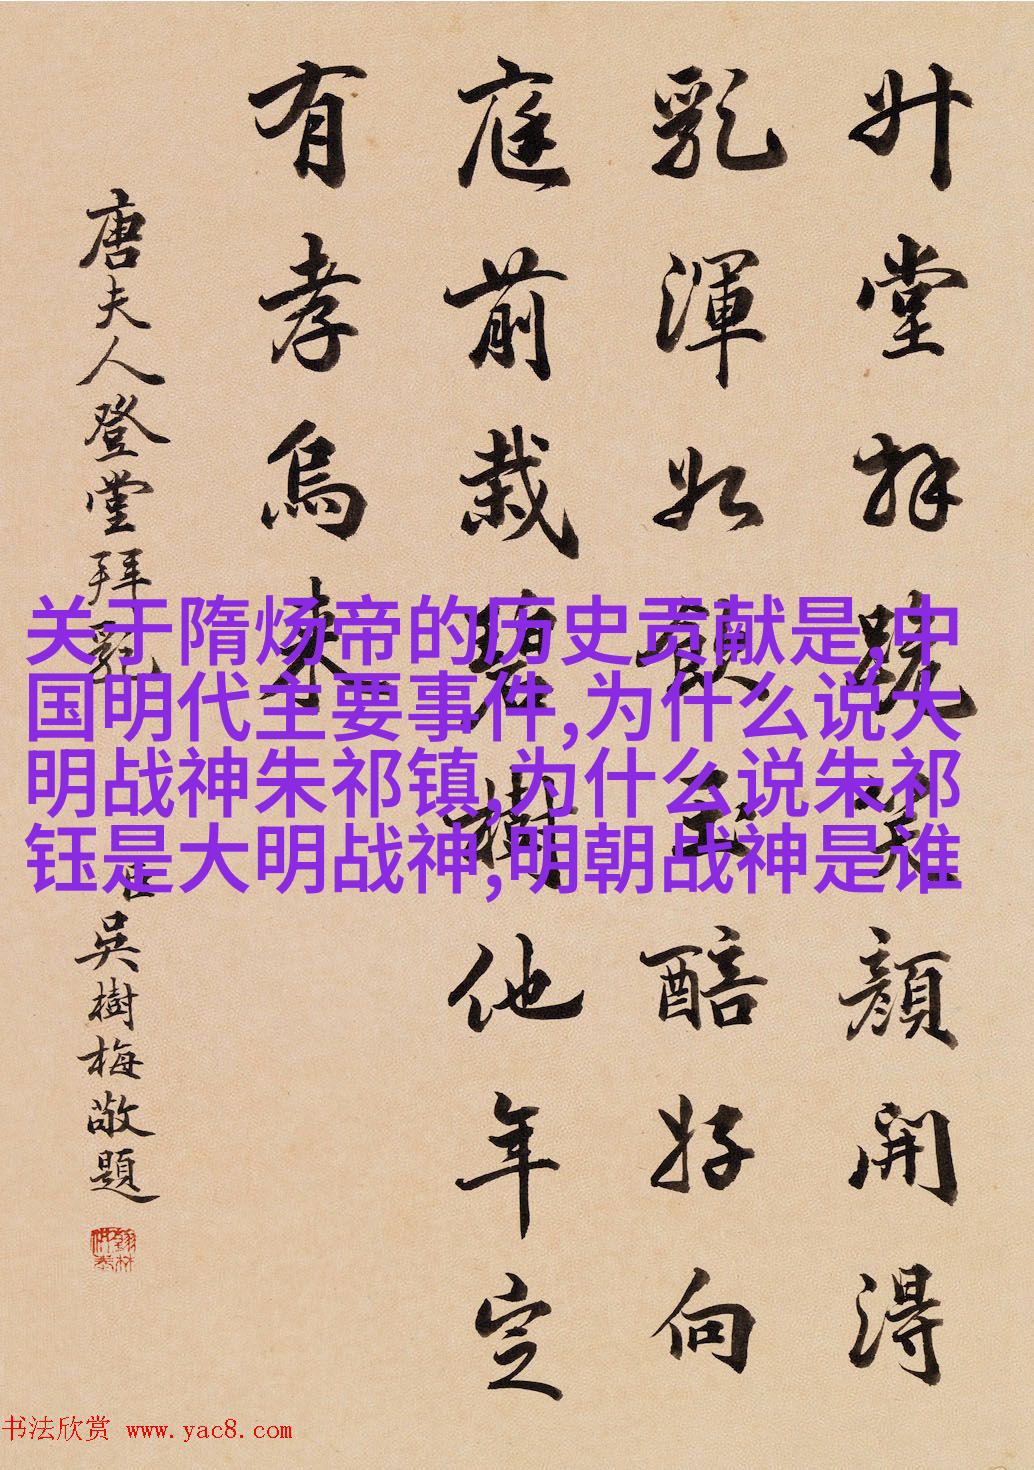 升堂拜跪笑顏開得
乳渾如飲玉醅好向
庭前栽碧樹他年定
有孝烏來
唐夫人登堂拜乳
臣吳樹梅敬題
关于隋炀帝的历史贡献是,中
国明代主要事件,为什么说大
明战神朱祁镇,为什么说朱祁
钰是大明战神,明朝战神是谁
书法欣赏 www.yac8.com